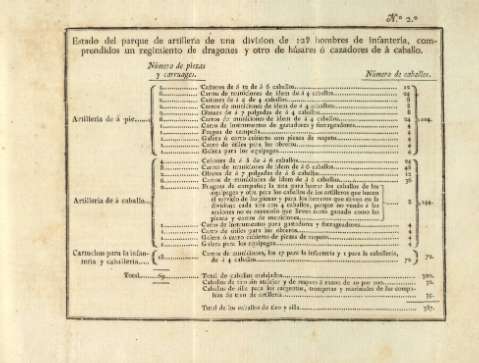 N.º 2.º
Estado del parque de artillería de una division de 12º hombres de infantería, com-
prendidos un regimiento de dragones y otro de húsares ó cazadores de á caballo.
Número de piezas
y carruages.
Número de caballos.
Cañones de á 12 de á 6 caballos 12
Carros de municiones de idem de á 4 caballos
Cañones de á 4 de 4 caballos 8
Carros de municiones de idem de á 4 caballos 8
Obuses de á 7 pulgadas de á 4 caballos 8
Carros de municiones de idem de á 4 caballos 24
Carros de instrumentos de gastadores y forrageadores 4
Fragua de campaña 4
Galera ó carro cubierto con piezas de respeto 4
Carro de útiles para los obreros 4
Galera para los equipages 4
Artillería de á pie
Cañones de á 8 de á 6 caballos 24
Carros de municiones de idem de á 6 caballos 48
Obuses de á 7 pulgadas de á 6 caballos 12
Carros de municiones de idem de á 6 caballos 36
Fraguas de campaña: la una para herrar los caballos de los
equipages y otra para los caballos de los artilleros que hacen
el servicio de las piezas y para los herreros que sirven en la
division: cada una con 4 caballos, porque no yendo á las
acciones no es necesario que lleven tanto ganado como las
piezas y carros de municiones. 8
Carros de instrumentos para gastadores y forrageadores 4
Carro de útiles para los obreros 4
Galera ó carro cubierto de piezas de respeto 4
Galera para los equipages 4
Artillería de á caballo
Cartuchos para la infan-
tería y caballería
18 Carros de municiones, los 17 para la infantería y 1 para la caballería,
de á 4 caballos 72 72.
Total 69 Total de caballos enjaezados
Caballos de tiro sin atalajar y de respeto á razon de 20 por 100
Caballos de silla para los sargentos, trompetas y mariscales de las compa-
ñías de tren de artillería 35.
Total de los caballos de tiro y silla